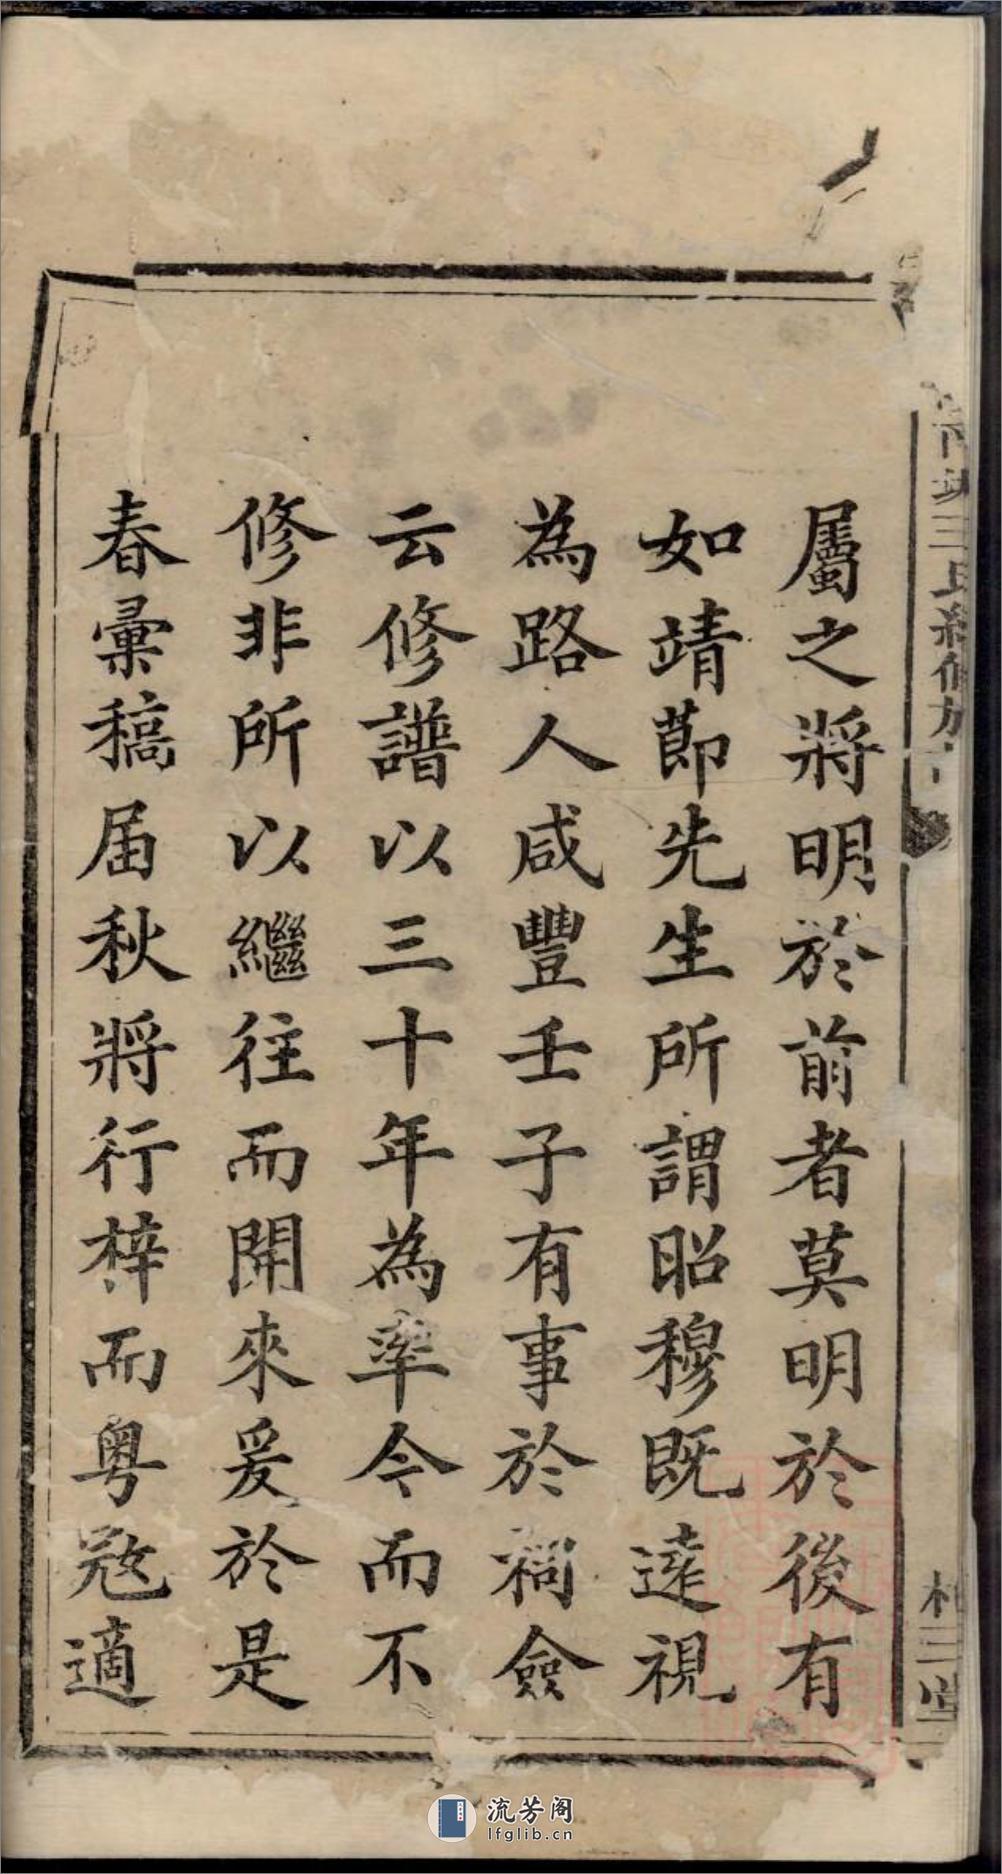 屬之將明於前者莫明於後有
如靖莭先生所謂昭穆既逺視
為路人咸豐壬子有事於祠僉
云修譜以三十年為率今而不
修非所以繼往而開來爰於是
春彙稿届秋將行梓而粤寇適
流芳阁
lfglib.cn